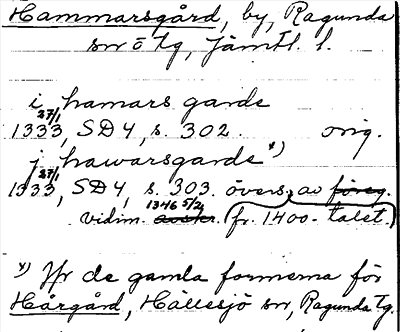 Hammarsgård, by, Ragunda
sn o tg, Jämtl. l.
i hamars garde
27/1
1333, SD 4, s. 302. orig.
j hawarsgarde x)
27/1
1333, SD 4, s. 303. övers. av föreg.
1346 5/2
vidim. avskr. (fr. 1400-talet.)
x) Jfr de gamla formerna för
Hårgård, Hällesjö sn, Ragunda tg.